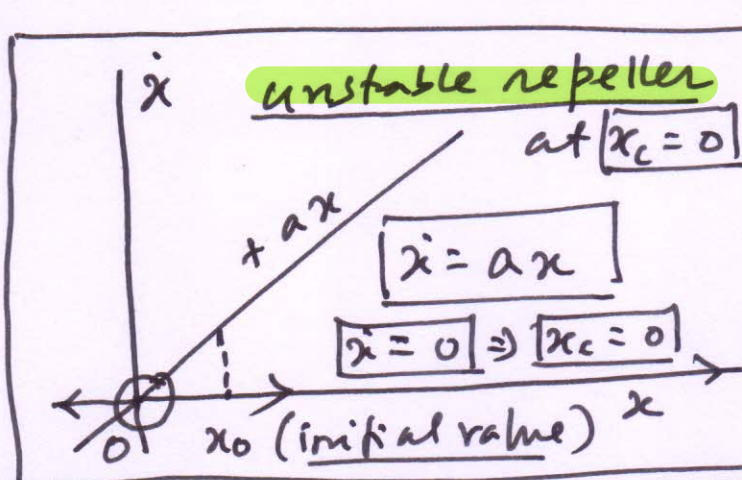 ẋ
unstable repeller
at x_c = 0
+ ax
ẋ = ax
ẋ = 0 ⇒ x_c = 0
0
x_0 (initial value)
x